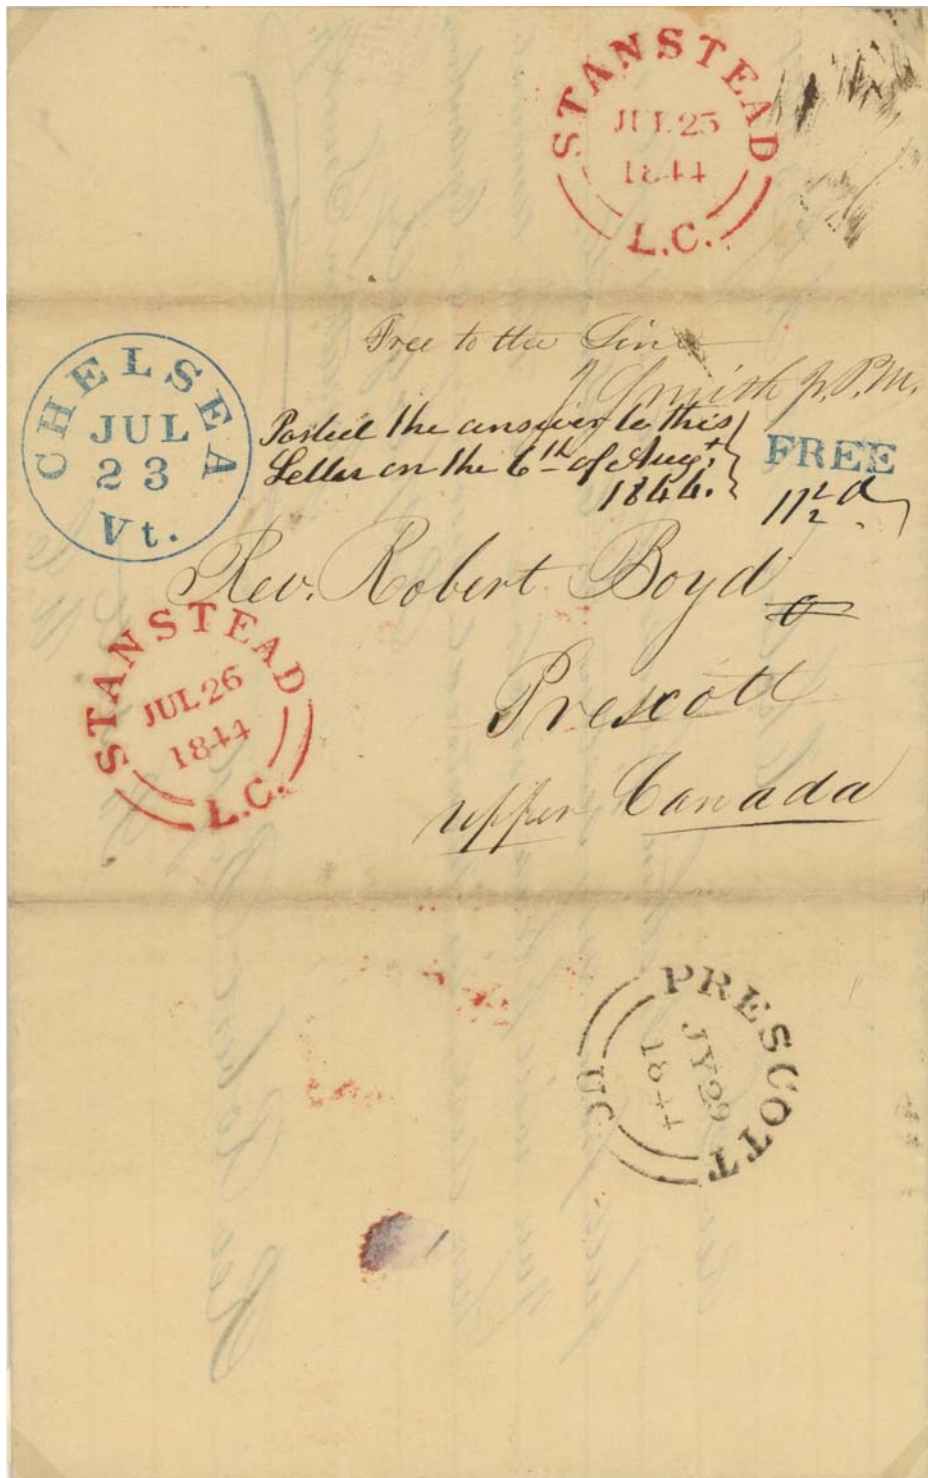 STANSTEAD
JUL 25
1844
L.C.
Free to the Line
J Smith Jr. P.M.
CHELSEA
JUL
23
Vt.
Posted the answer to this
Letter on the 6th of Augt
1844.
FREE
11½ d
Rev. Robert Boyd
Prescott
Upper Canada
STANSTEAD
JUL 26
1844
L.C.
PRESCOTT
JY 29
1844
UC